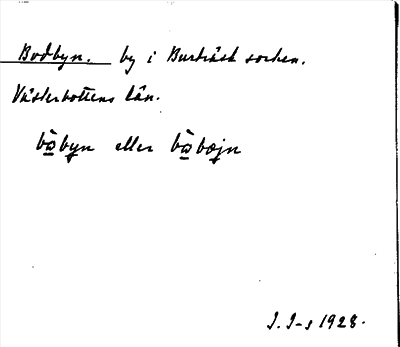 Bodbyn. by i Burträsk socken.
Västerbottens län.
bò̱byn eller bò̱bæjn
J. I-s 1928.